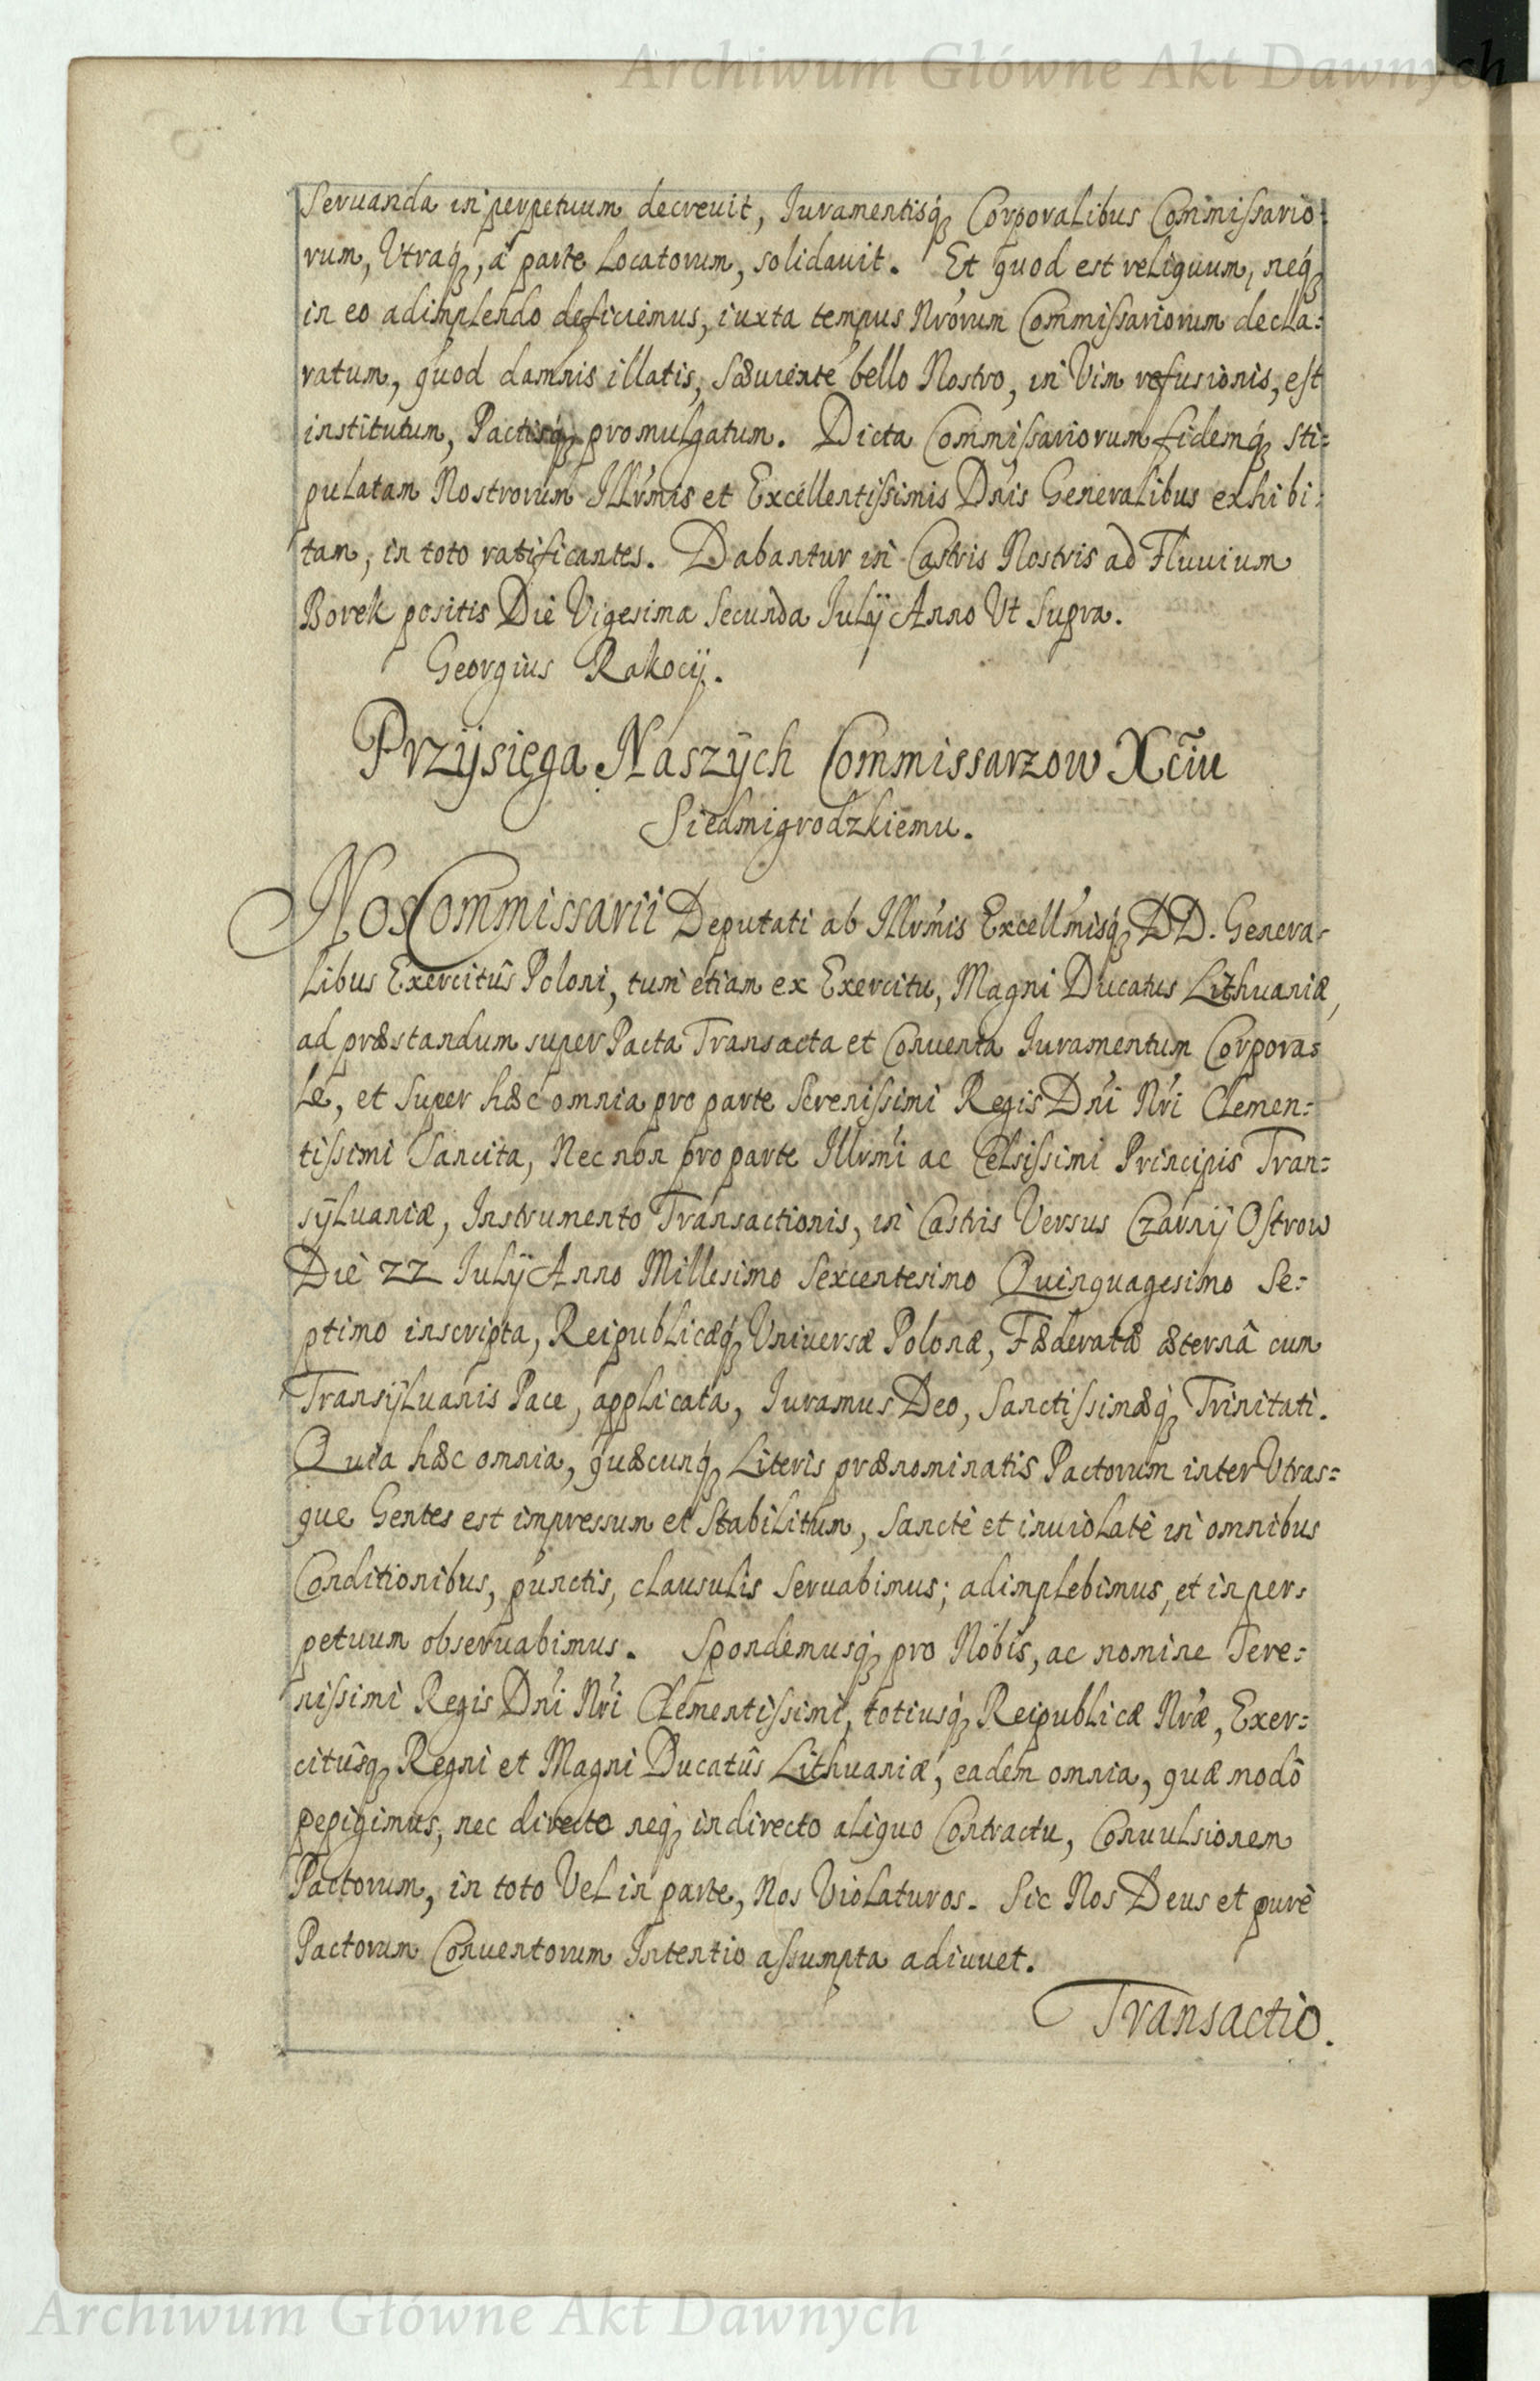 Archiwum Główne Akt Dawnych
Seruanda in perpetuum decreuit, Iuramentisq́ꝫ Corporalibus Commissario:
rum, Utraq́ꝫ, a parte Locatorum, solidauit. Et quod est reliquum, neq́ꝫ
in eo adimplendo deficiemus, iuxta tempus Nrorum Commissariorum decla:
ratum, quod damnis illatis, sæuiente bello Nostro, in Vim refusionis, est
institutum, Pactisq́ꝫ promulgatum. Dicta Commissariorum fidemq́ꝫ sti:
pulatam Nostrorum Illrmis et Excellentissimis Dnis Generalibus exhibi:
tam, in toto ratificantes. Dabantur in Castris Nostris ad Fluuium
Borek positis Die Vigesima Secunda Iulÿ Anno Ut Supra.
Georgius Rakocÿ.
Przÿsięga Naszÿch Commissarzow Xciu
Siedmigrodzkiemu.
Nos Commissarii Deputati ab Illrmis Excellmisq́ꝫ DD. Genera:
libus Exercitûs Poloni, tum etiam ex Exercitu, Magni Ducatus Lithuaniæ,
ad præstandum super Pacta Transacta et Conuenta Iuramentum Corpora:
le, et super hæc omnia pro parte Serenissimi Regis Dni Nri Clemen:
tissimi Sancita, Nec non pro parte Illrmi ac Celsissimi Principis Tran:
sÿluaniæ, Instrumento Transactionis, in Castris Versus Czarnÿ Ostrow
Die 22 Iulÿ Anno Millesimo Sexcentesimo Quinquagesimo Se:
ptimo inscripta, Reipublicæq́ꝫ Uniuersæ Polonæ, Fæderatæ æternâ cum
Transÿluanis Pace, applicata, Iuramus Deo, Sanctissimæq́ꝫ Trinitati.
Quia hæc omnia, quæcunq́ꝫ Literis prænominatis Pactorum inter Utras:
que Gentes est impressum et Stabilitum, Sancte et inuiolate in omnibus
Conditionibus, punctis, clausulis Seruabimus; adimplebimus, et in per:
petuum obseruabimus. Spondemusq́ꝫ pro Nobis, ac nomine Sere:
nissimi Regis Dni Nri Clementissimi, totiusq́ꝫ Reipublicæ Nræ, Exer:
citûsq́ꝫ Regni et Magni Ducatûs Lithuaniæ, eadem omnia, quæ modo
pepigimus, nec directo neq́ꝫ indirecto aliquo Contractu, Conuulsionem
Pactorum, in toto Vel in parte, Nos Violaturos. Sic Nos Deus et pure
Pactorum Conuentorum Intentio assumpta adiuuet.
Transactio.
Archiwum Główne Akt Dawnych